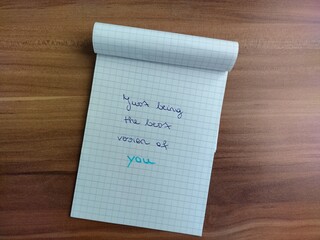 Just being
the best
vosion of
you